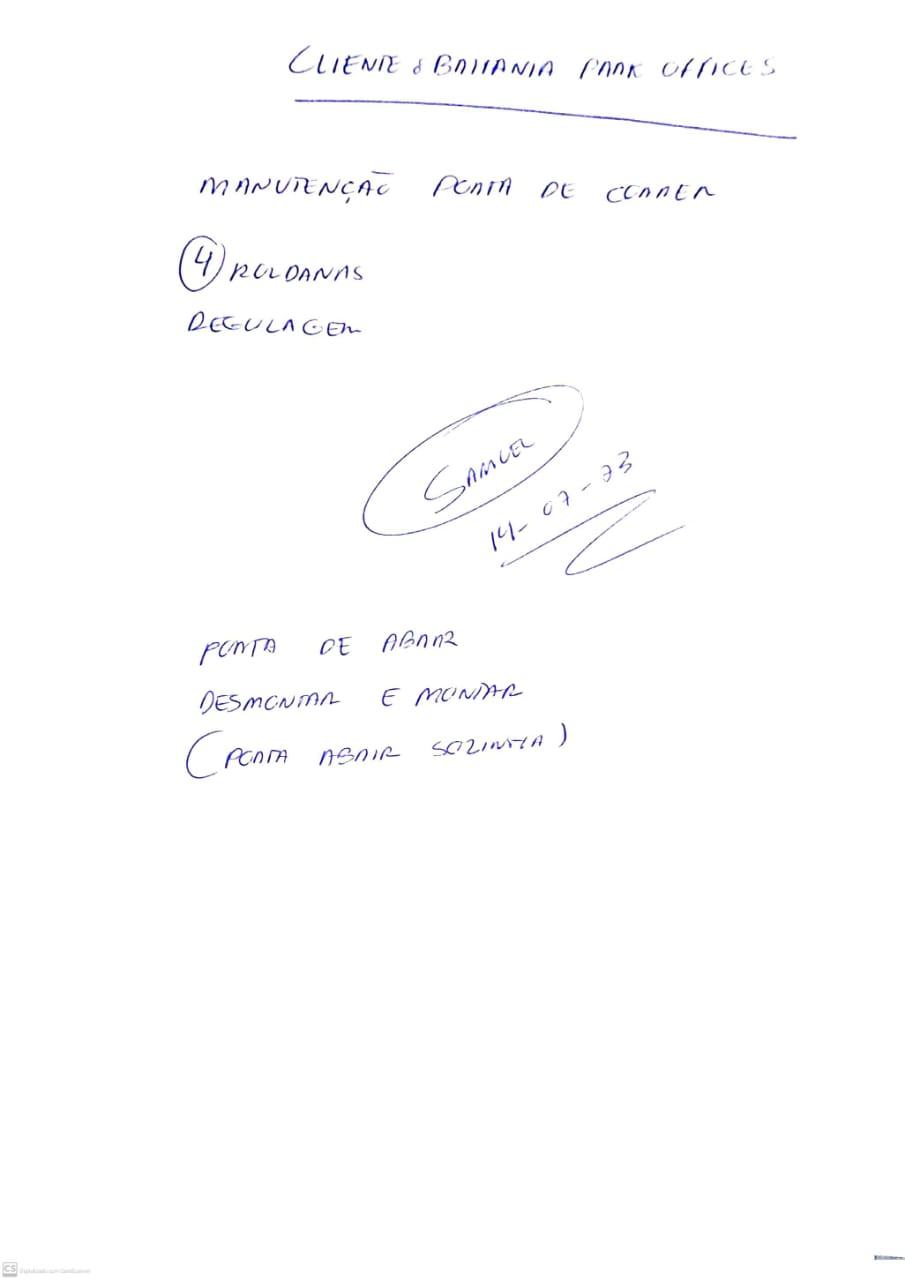 CLIENTE: BAHIANIA PARK OFFICES
MANUTENÇÃO PORTA DE CORRER
4 ROLDANAS
REGULAGEM
SAMUEL
14-07-23
PORTA DE ABRIR
DESMONTAR E MONTAR
(PORTA ABRIR SOZINHA)
CS Digitalizado com CamScanner